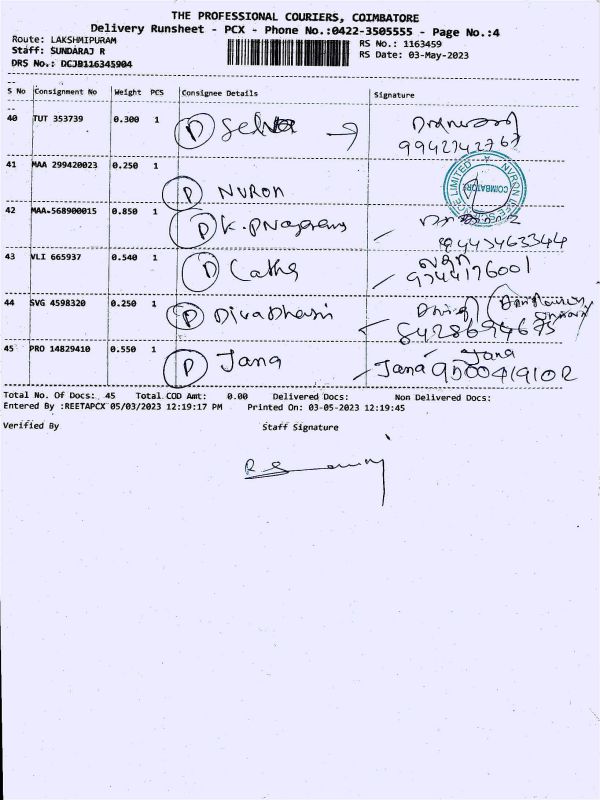 THE PROFESSIONAL COURIERS, COIMBATORE
Delivery Runsheet - PCX - Phone No.:0422-3505555 - Page No.:4
Route: LAKSHMIPURAM
Staff: SUNDARAJ R
DRS No.: DCJB116345904
RS No.: 1163459
RS Date: 03-May-2023
S No Consignment No Weight PCS Consignee Details Signature
40 TUT 353739 0.300 1 D Selva
9942742767
41 MAA 299420023 0.250 1 D NVRON
COIMBATORE
42 MAA-568900015 0.850 1 D
9944534633​44
43 VLI 665937 0.540 1 D Catha
9744176001
44 SVG 4598320 0.250 1 D Divadhari
8428694675
45 PRO 14829410 0.550 1 D Jana
Jana
Jana 9500419102
Total No. Of Docs: 45 Total COD Amt: 0.00 Delivered Docs: Non Delivered Docs:
Entered By :REETAPCX 05/03/2023 12:19:17 PM Printed On: 03-05-2023 12:19:45
Verified By Staff Signature